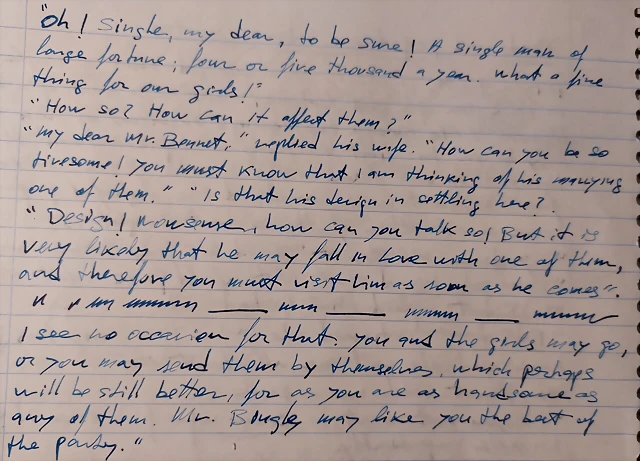 "Oh! Single, my dear, to be sure! A single man of
large fortune; four or five thousand a year. What a fine
thing for our girls!"
"How so? How can it affect them?"
"my dear Mr. Bennet," replied his wife. "How can you be so
tiresome! you must know that I am thinking of his marrying
one of them." "Is that his design in settling here?
"Design! nonsense, how can you talk so! But it is
very likely that he may fall in love with one of them,
and therefore you must visit him as soon as he comes".
I see no occasion for that. you and the girls may go,
or you may send them by themselves, which perhaps
will be still better, for as you are as handsome as
any of them. Mr. Bingley may like you the best of
the party."